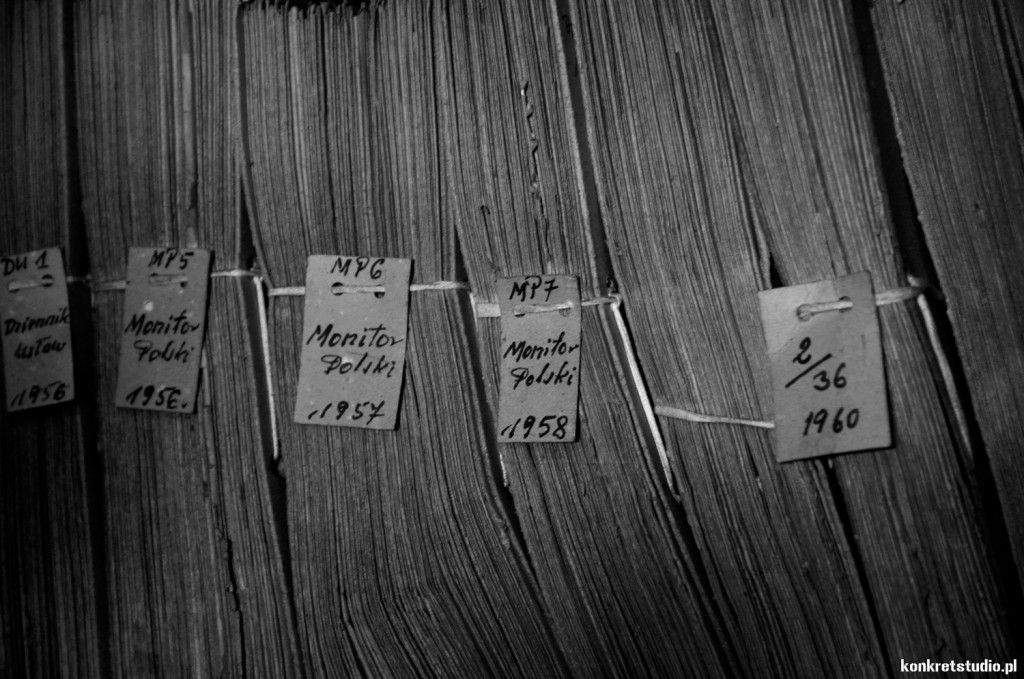 DU 1
Dziennik
Ustaw
1956
MP5
Monitor
Polski
1956.
MP6
Monitor
Polski
1957
MP7
Monitor
Polski
1958
2/36
1960
konkretstudio.pl